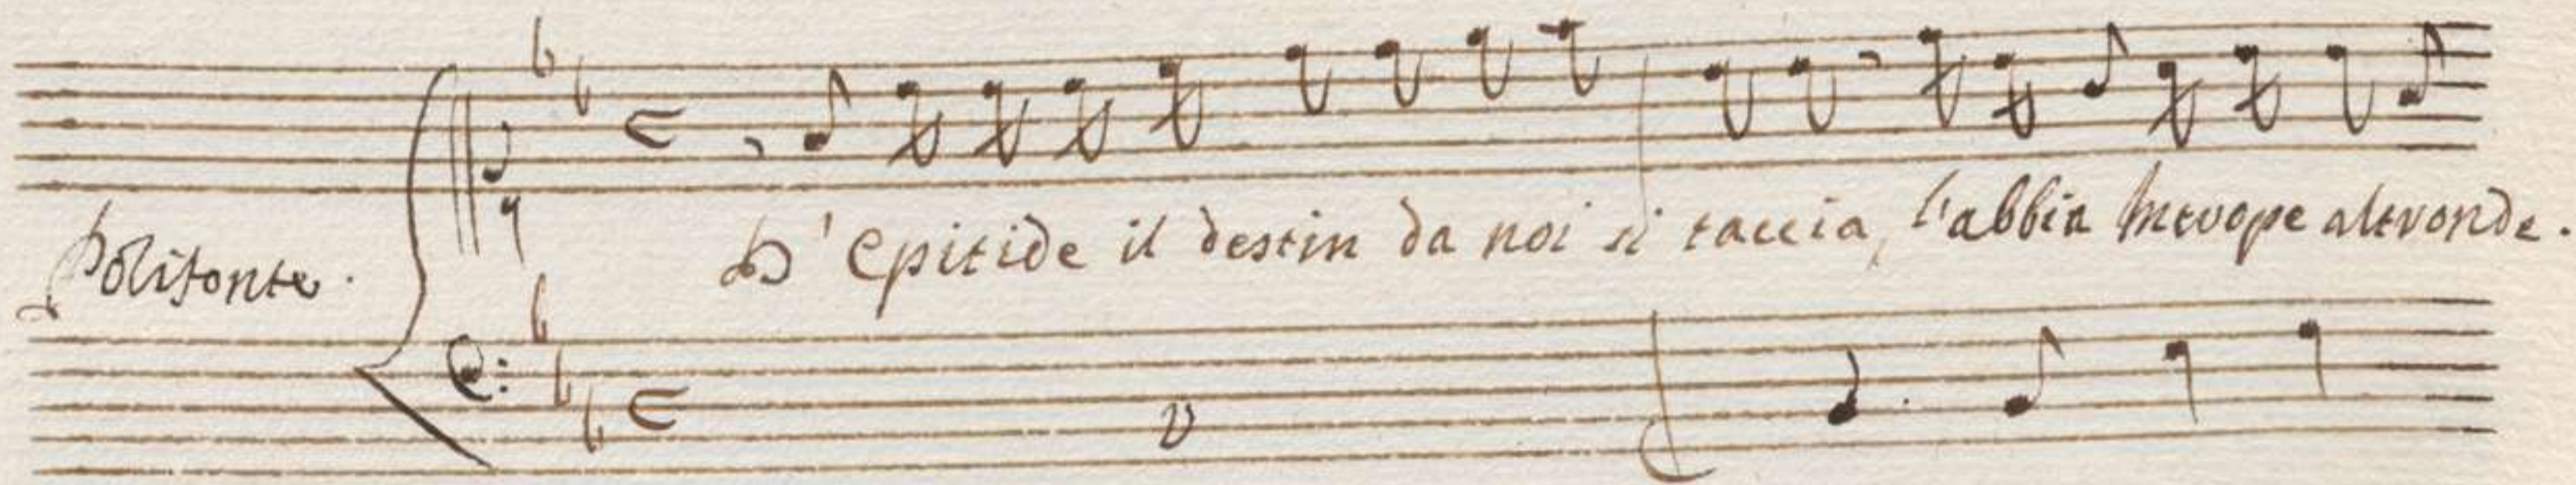 Polifonte.
D'Epitide il destin da noi si taccia, l'abbia Merope altronde.